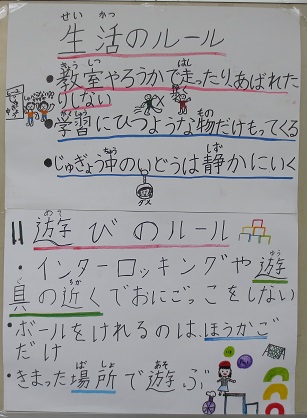 生活のルール
・教室やろうかで走ったり、あばれた
りしない
・学習にひつような物だけもってくる
・じゅぎょう中のいどうは静かにいく
ダメ
遊びのルール
・インターロッキングや遊
具の近くでおにごっこをしない
・ボールをけれるのは、ほうかご
だけ
・きまった場所で遊ぶ